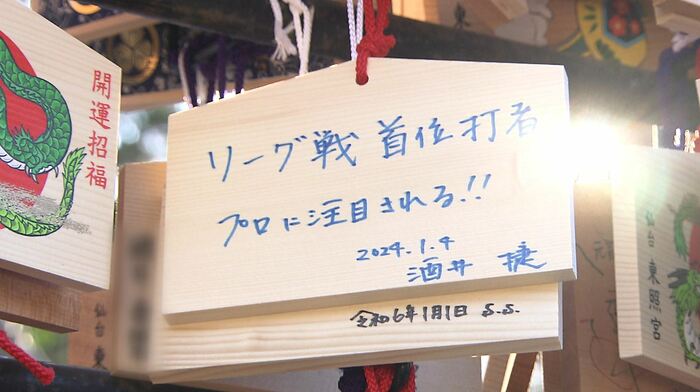 開運招福
リーグ戦 首位打者
プロに注目される!!
2024.1.4
酒井 捷
令和6年1月1日 S.S.
仙台 東
仙台 東照宮
東